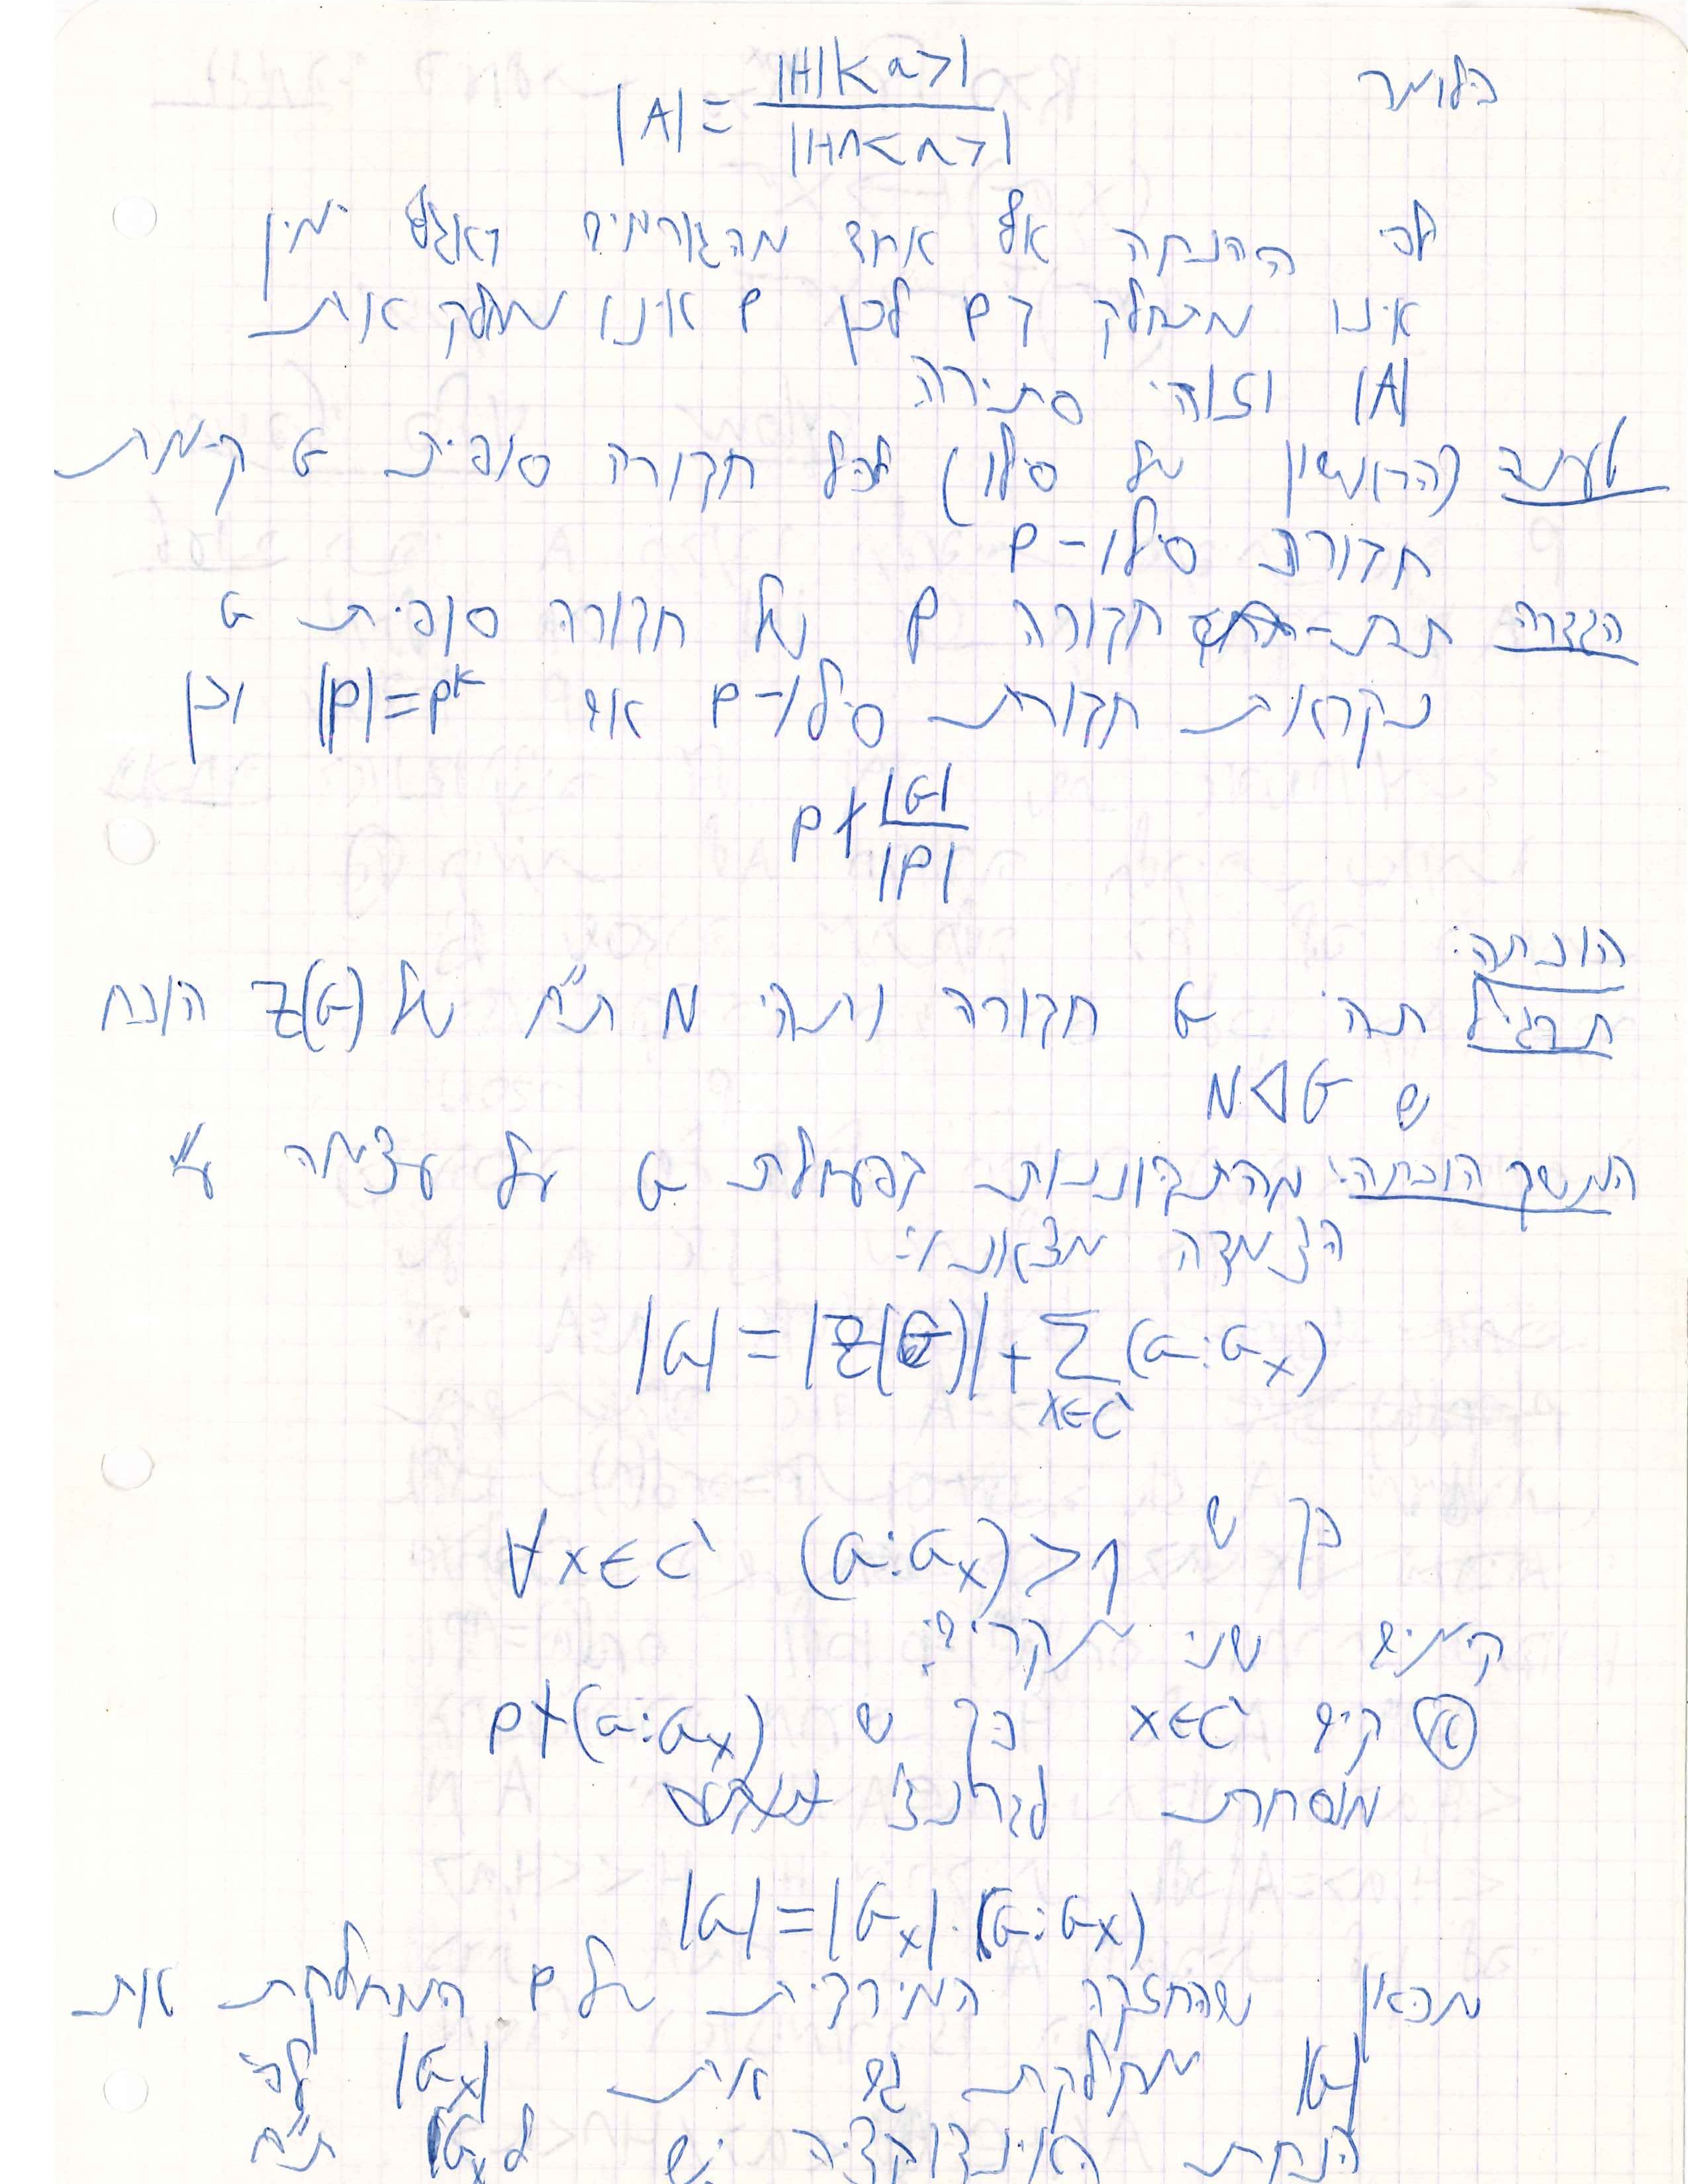 כלומר |A| = |H||<a>| / |H∩<a>|
לפי ההנחה אף אחד מהגורמים באגף ימין
אינו מתחלק בp לכן p אינו מחלק את
|A| וזוהי סתירה
טענה (הראשון של סילו) לכל חבורה סופית G קיימת
חבורת סילו-p
הגדרה תת-חבורה P של חבורה סופית G
נקראת חבורת סילו-p אם |P|=p^k וכן
p∤|G|/|P|
הוכחה:
תרגיל תהי G חבורה ותהי N ת"ח של Z(G) הוכח
ש N⊲G
המשך הוכחה: מהתבוננות בפעולת G על עצמה ע"י
הצמדה מצאנו:
|G|=|Z(G)|+∑_{x∈C'}(G:G_x)
כך ש ∀x∈C' (G:G_x)>1
קיימים שני מקרים:
א קיים x∈C' כך ש p∤(G:G_x)
מנוסחת לגרנג'
|G|=|G_x|·(G:G_x)
מכאן שהחזקה המירבית של p המחלקת את
|G| מחלקת גם את |G_x| לפי
הנחת האינדוקציה יש לG_x ת"ח